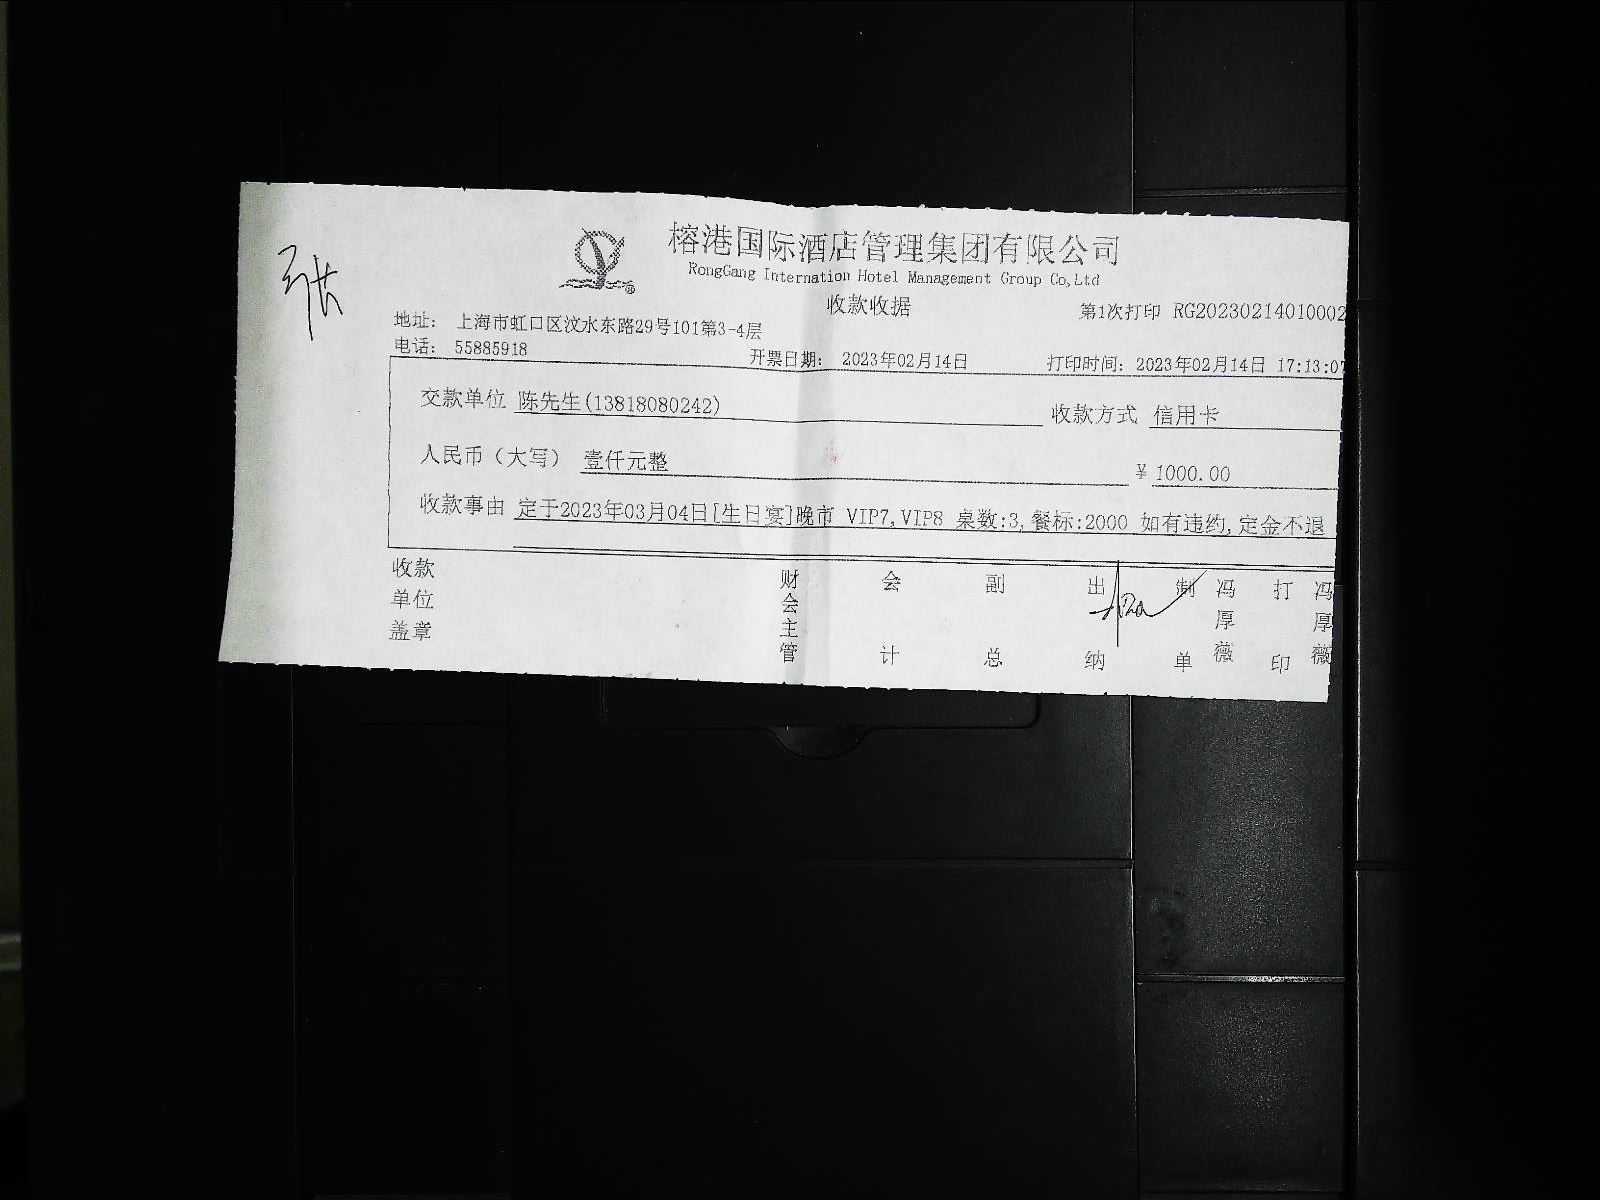 张
榕港国际酒店管理集团有限公司
RongGang Internation Hotel Management Group Co,Ltd
收款收据
第1次打印 RG20230214010002
地址: 上海市虹口区汶水东路29号101第3-4层
电话: 55885918
开票日期: 2023年02月14日
打印时间: 2023年02月14日 17:13:07
交款单位 陈先生(13818080242)
收款方式 信用卡
人民币（大写） 壹仟元整
¥ 1000.00
收款事由 定于2023年03月04日[生日宴]晚市 VIP7,VIP8 桌数:3,餐标:2000 如有违约,定金不退
收款单位盖章
财会主管
会计
副总
出纳
制单 冯厚薇
打印 冯厚薇